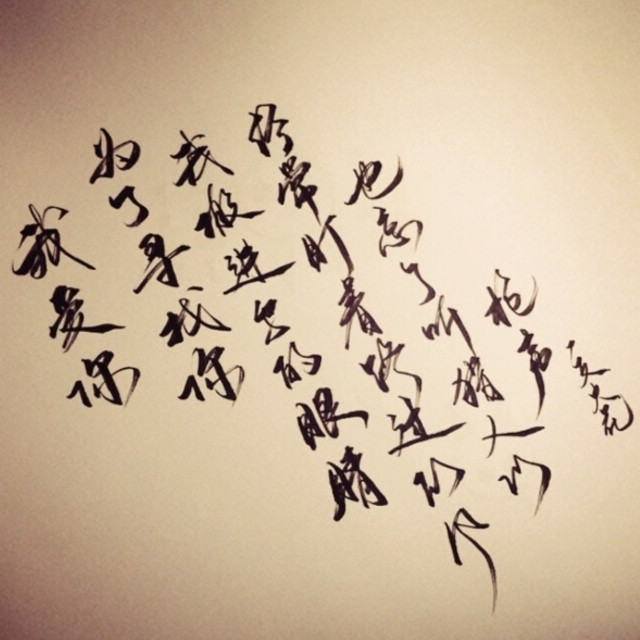 我爱你
为了寻找你
我搬进鸟的眼睛
经常盯着路过的风
也忘了听猎人的
枪声